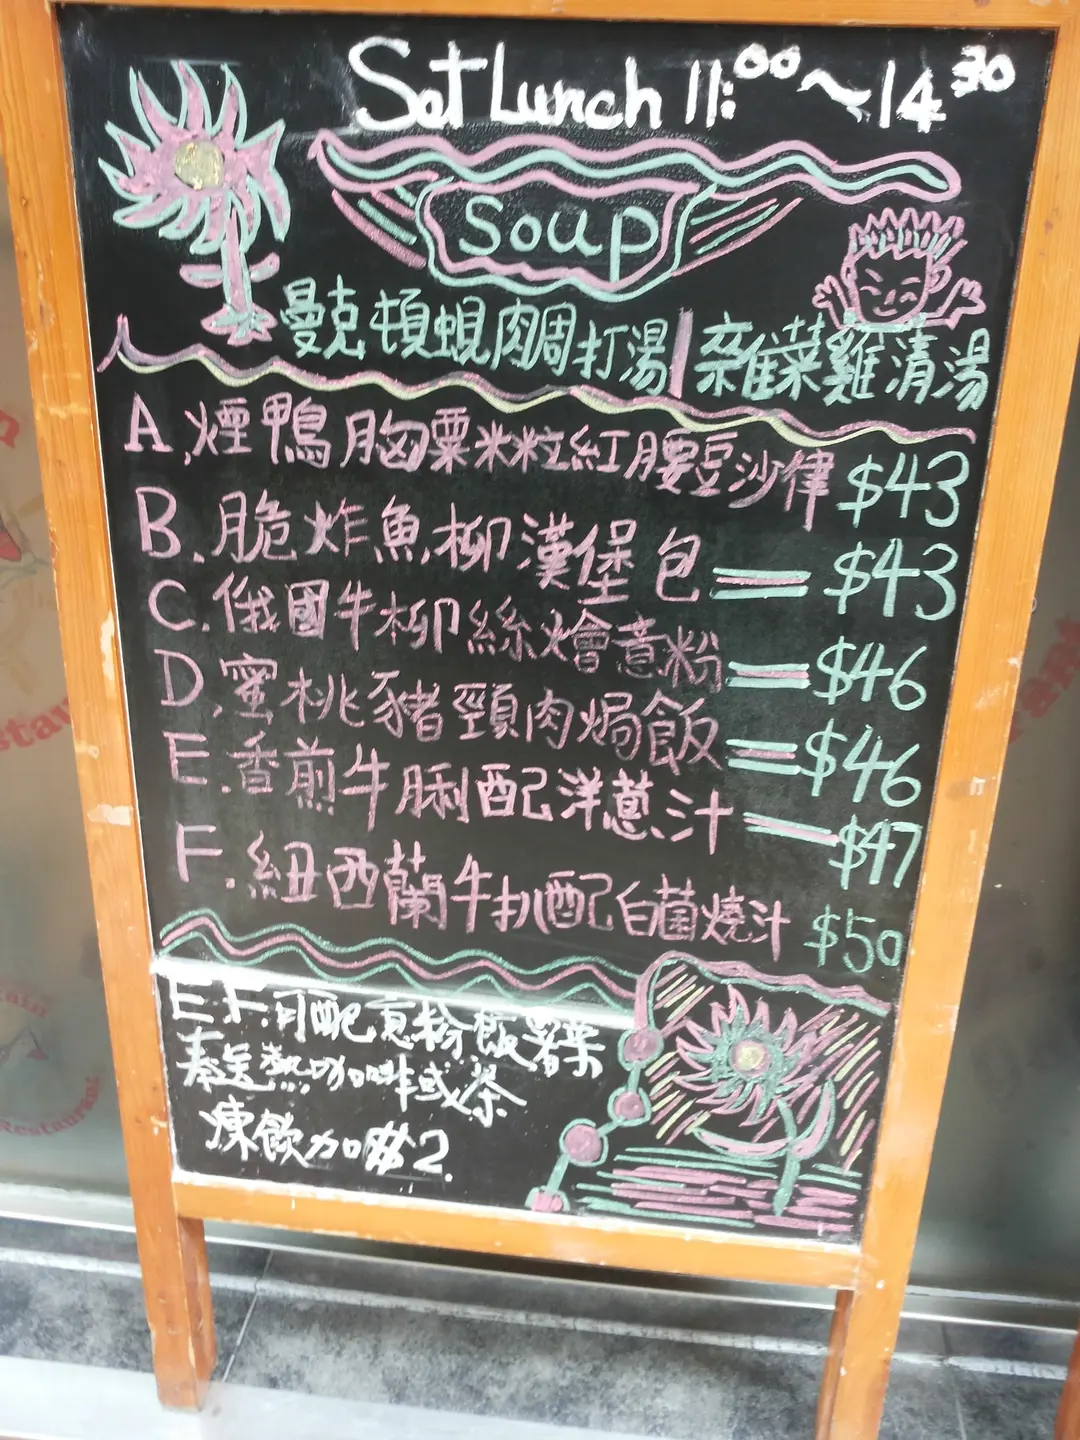 Set Lunch 11:00~14 30
Soup
曼克頓蜆肉周打湯|雜菜雞清湯
A,煙鴨胸粟米粒紅腰豆沙律 $43
B.脆炸魚柳漢堡包=$43
C.俄國牛柳絲燴意粉=$46
D.蜜桃豬頸肉焗飯=$46
E.香煎牛脷配洋蔥汁=$47
F.紐西蘭牛扒配白菌燒汁 $50
E.F.可配意粉飯薯菜
奉送熱咖啡或茶
凍飲加$2.